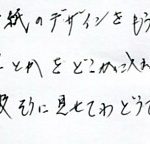 紙のデザインをもう
とかをどこかに入れ
そうに見せてわどう